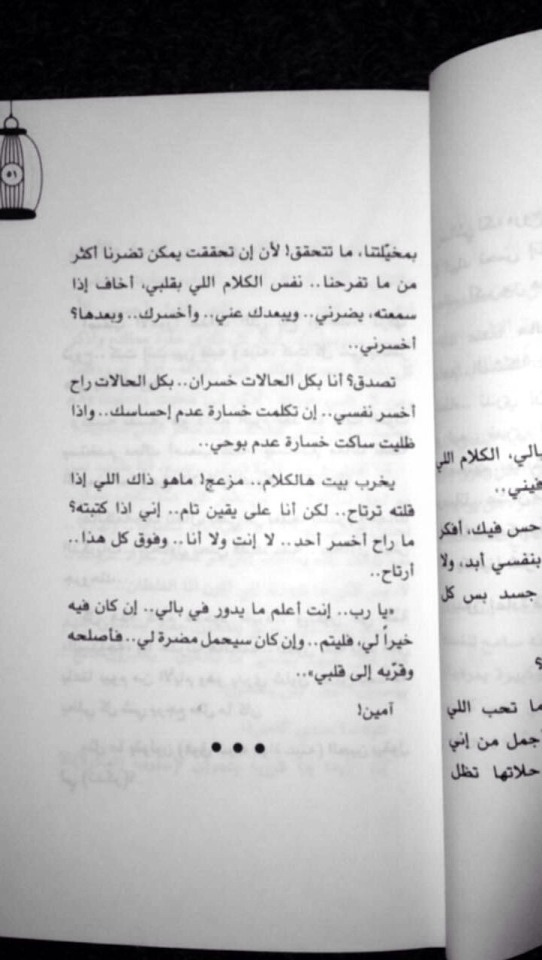 ٥١
بمخيّلتنا، ما تتحقق! لأن إن تحققت يمكن تضرنا أكثر
من ما تفرحنا.. نفس الكلام اللي بقلبي، أخاف إذا
سمعته، يضرني.. ويبعدك عني.. وأخسرك.. وبعدها؟
أخسرني..
تصدق؟ أنا بكل الحالات خسران.. بكل الحالات راح
أخسر نفسي.. إن تكلمت خسارة عدم إحساسك.. واذا
ظليت ساكت خسارة عدم بوحي..
يخرب بيت هالكلام.. مزعج! ماهو ذاك اللي إذا
قلته ترتاح.. لكن أنا على يقين تام.. إني اذا كتبته؟
ما راح أخسر أحد.. لا إنت ولا أنا.. وفوق كل هذا..
أرتاح..
«يا رب.. إنت أعلم ما يدور في بالي.. إن كان فيه
خيراً لي، فليتم.. وإن كان سيحمل مضرة لي.. فأصلحه
وقرّبه إلى قلبي»..
آمين!
بالي، الكلام اللي
فيني..
حس فيك، أفكر
بنفسي أبد، ولا
جسد بس كل
؟
ما تحب اللي
أجمل من إني
حلاتها تظل